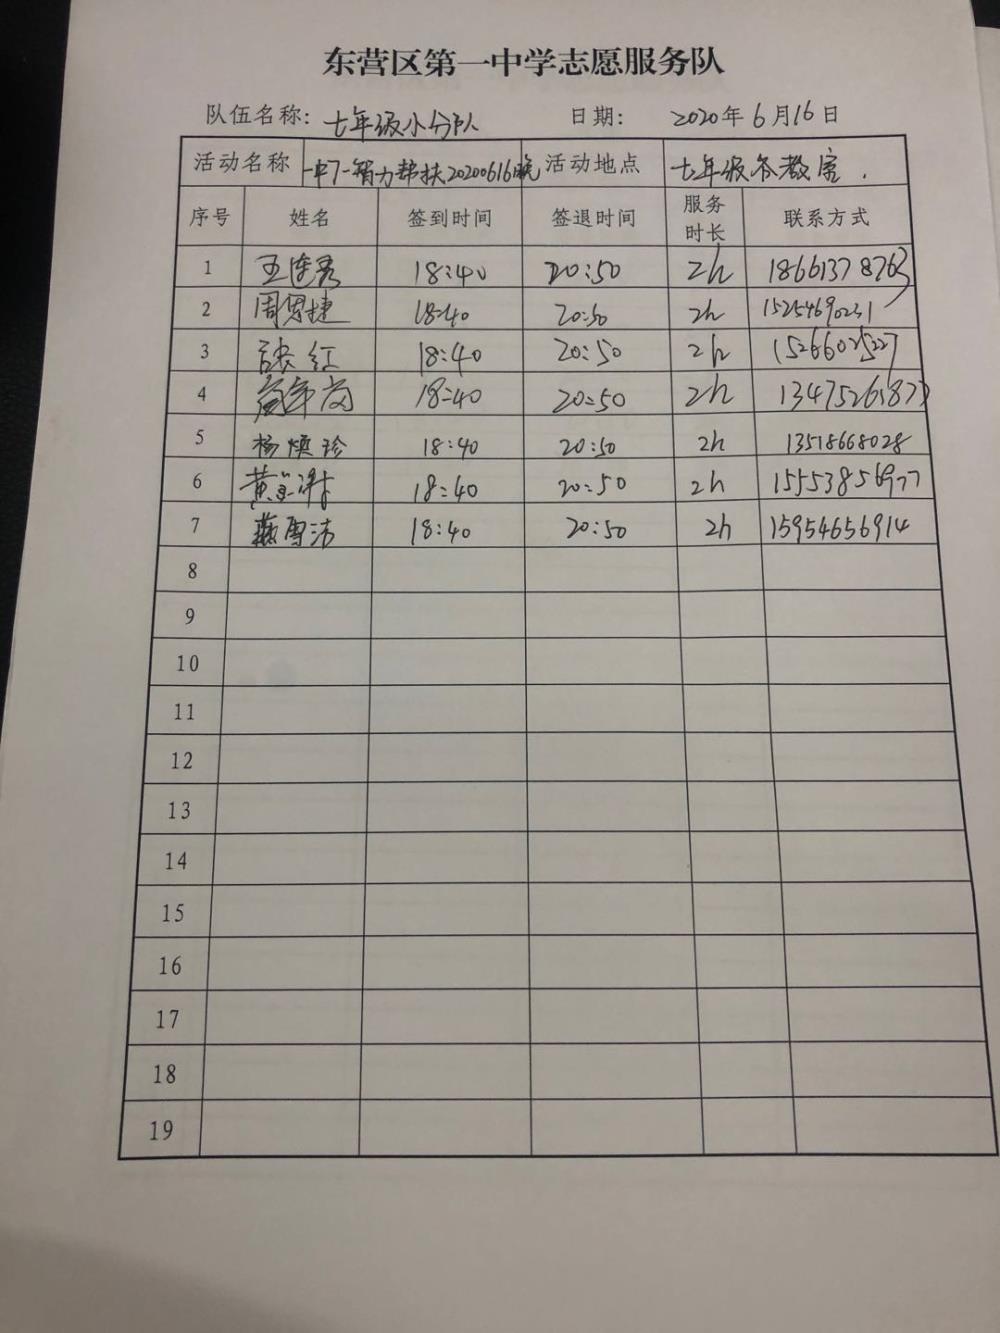 东营区第一中学志愿服务队
队伍名称: 七年级小分队 日期: 2020年6月16日
活动名称 一中7-智力帮扶20200616晚 活动地点 七年级各教室.
序号 姓名 签到时间 签退时间 服务时长 联系方式
1 王连秀 18:40 20:50 2h 18661378763
2 周恩捷 18:40 20:50 2h 15254690231
3 张红 18:40 20:50 2h 15266025227
4 18:40 20:50 2h 13475261873
5 杨焕珍 18:40 20:50 2h 13518668028
6 黄 18:40 20:50 2h 15553856977
7 燕雪洁 18:40 20:50 2h 15954656914
8
9
10
11
12
13
14
15
16
17
18
19